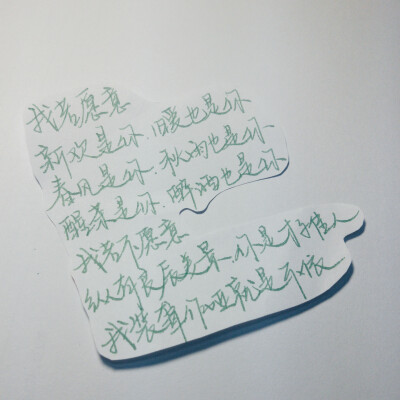 我若愿意
新欢是你.旧爱也是你
春风是你.秋雨也是你
醒茶是你.醉酒也是你
我若不愿意
纵有良辰美景 你是才子佳人
我装聋作哑就是不依